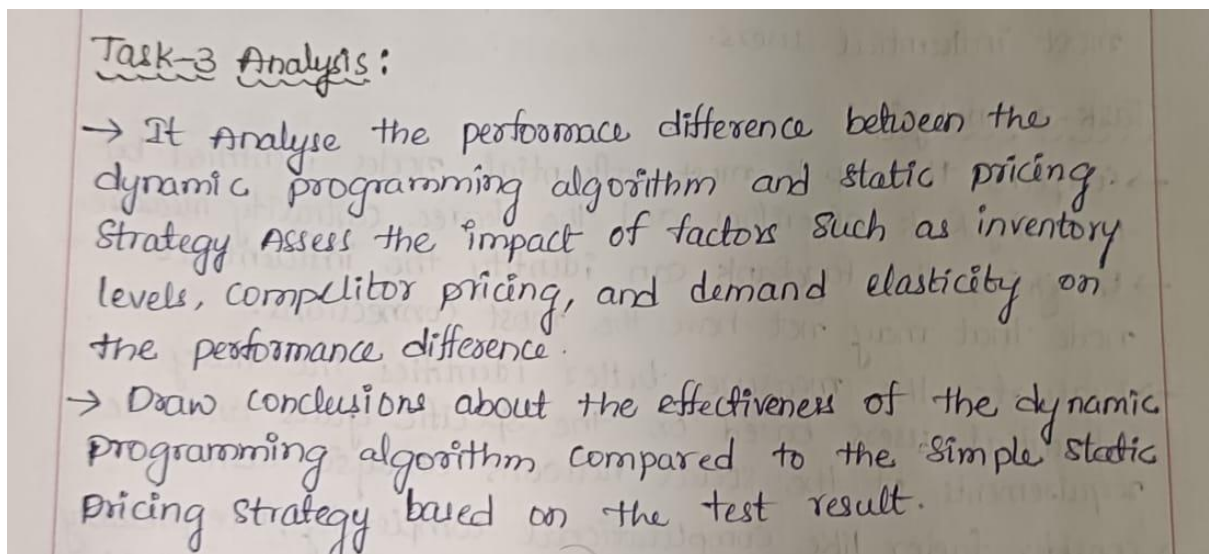 Task-3 Analysis:
→ It Analyse the perfoomace difference between the
dynamic programming algorithm and static pricing.
Strategy Assess the impact of factors such as inventory
levels, complitor pricing, and demand elasticity on
the performance difference.
→ Draw conclusions about the effectiveness of the dynamic
programming algorithm compared to the simple static
pricing strategy based on the test result.